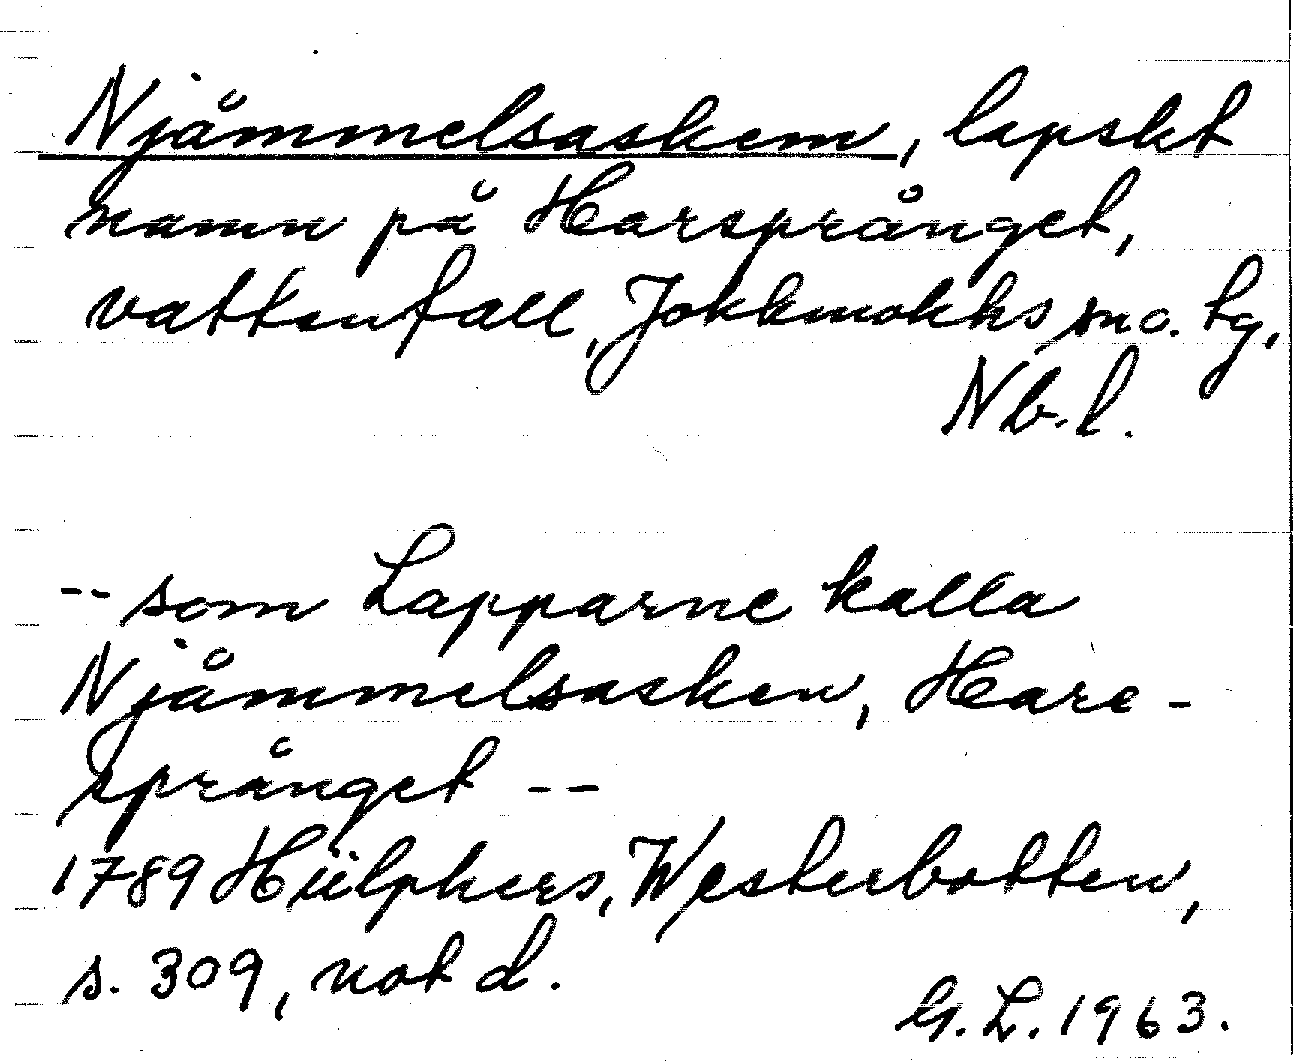 Njåmmelsaskem, lapskt
namn på Harsprånget,
vattenfall, Jokkmokks sno. tg,
Nb. l.
-- som Lapparne kalla
Njåmmelsasken, Hare-
språnget --
1789 Hülphers, Westerbotten,
s. 309, not d.
G. L. 1963.